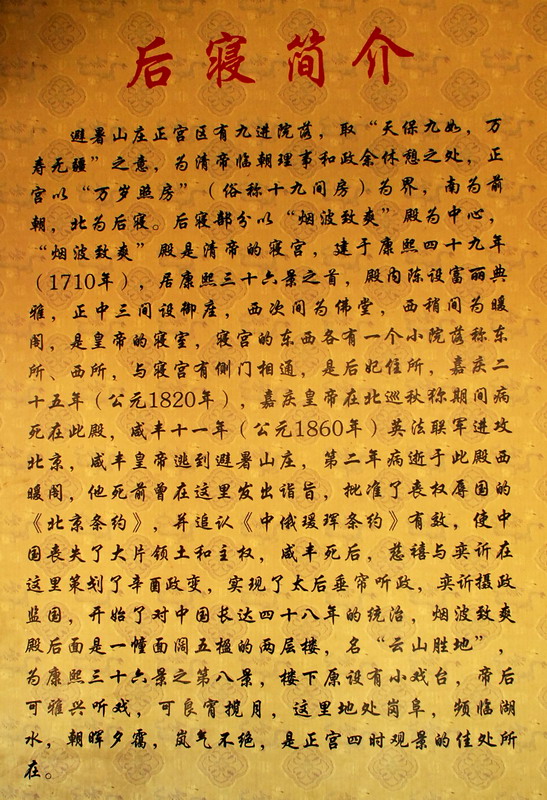 后寝简介
避暑山庄正宫区有九进院落，取“天保九如，万
寿无疆”之意，为清帝临朝理事和政余休憩之处，正
宫以“万岁照房”（俗称十九间房）为界，南为前
朝，北为后寝。后寝部分以“烟波致爽”殿为中心，
“烟波致爽”殿是清帝的寝宫，建于康熙四十九年
（1710年），居康熙三十六景之首，殿内陈设富丽典
雅，正中三间设御座，西次间为佛堂，西稍间为暖
阁，是皇帝的寝室，寝宫的东西各有一个小院落称东
所、西所，与寝宫有侧门相通，是后妃住所，嘉庆二
十五年（公元1820年），嘉庆皇帝在北巡秋狝期间病
死在此殿，咸丰十一年（公元1860年）英法联军进攻
北京，咸丰皇帝逃到避暑山庄，第二年病逝于此殿西
暖阁，他死前曾在这里发出诣旨，批准了丧权辱国的
《北京条约》，并追认《中俄瑷珲条约》有效，使中
国丧失了大片领土和主权，咸丰死后，慈禧与奕䜣在
这里策划了辛酉政变，实现了太后垂帘听政，奕䜣摄政
监国，开始了对中国长达四十八年的统治，烟波致爽
殿后面是一幢面阔五楹的两层楼，名“云山胜地”，
为康熙三十六景之第八景，楼下原设有小戏台，帝后
可雅兴听戏，可良宵揽月，这里地处岗阜，频临湖
水，朝晖夕霭，岚气不绝，是正宫四时观景的佳处所
在。